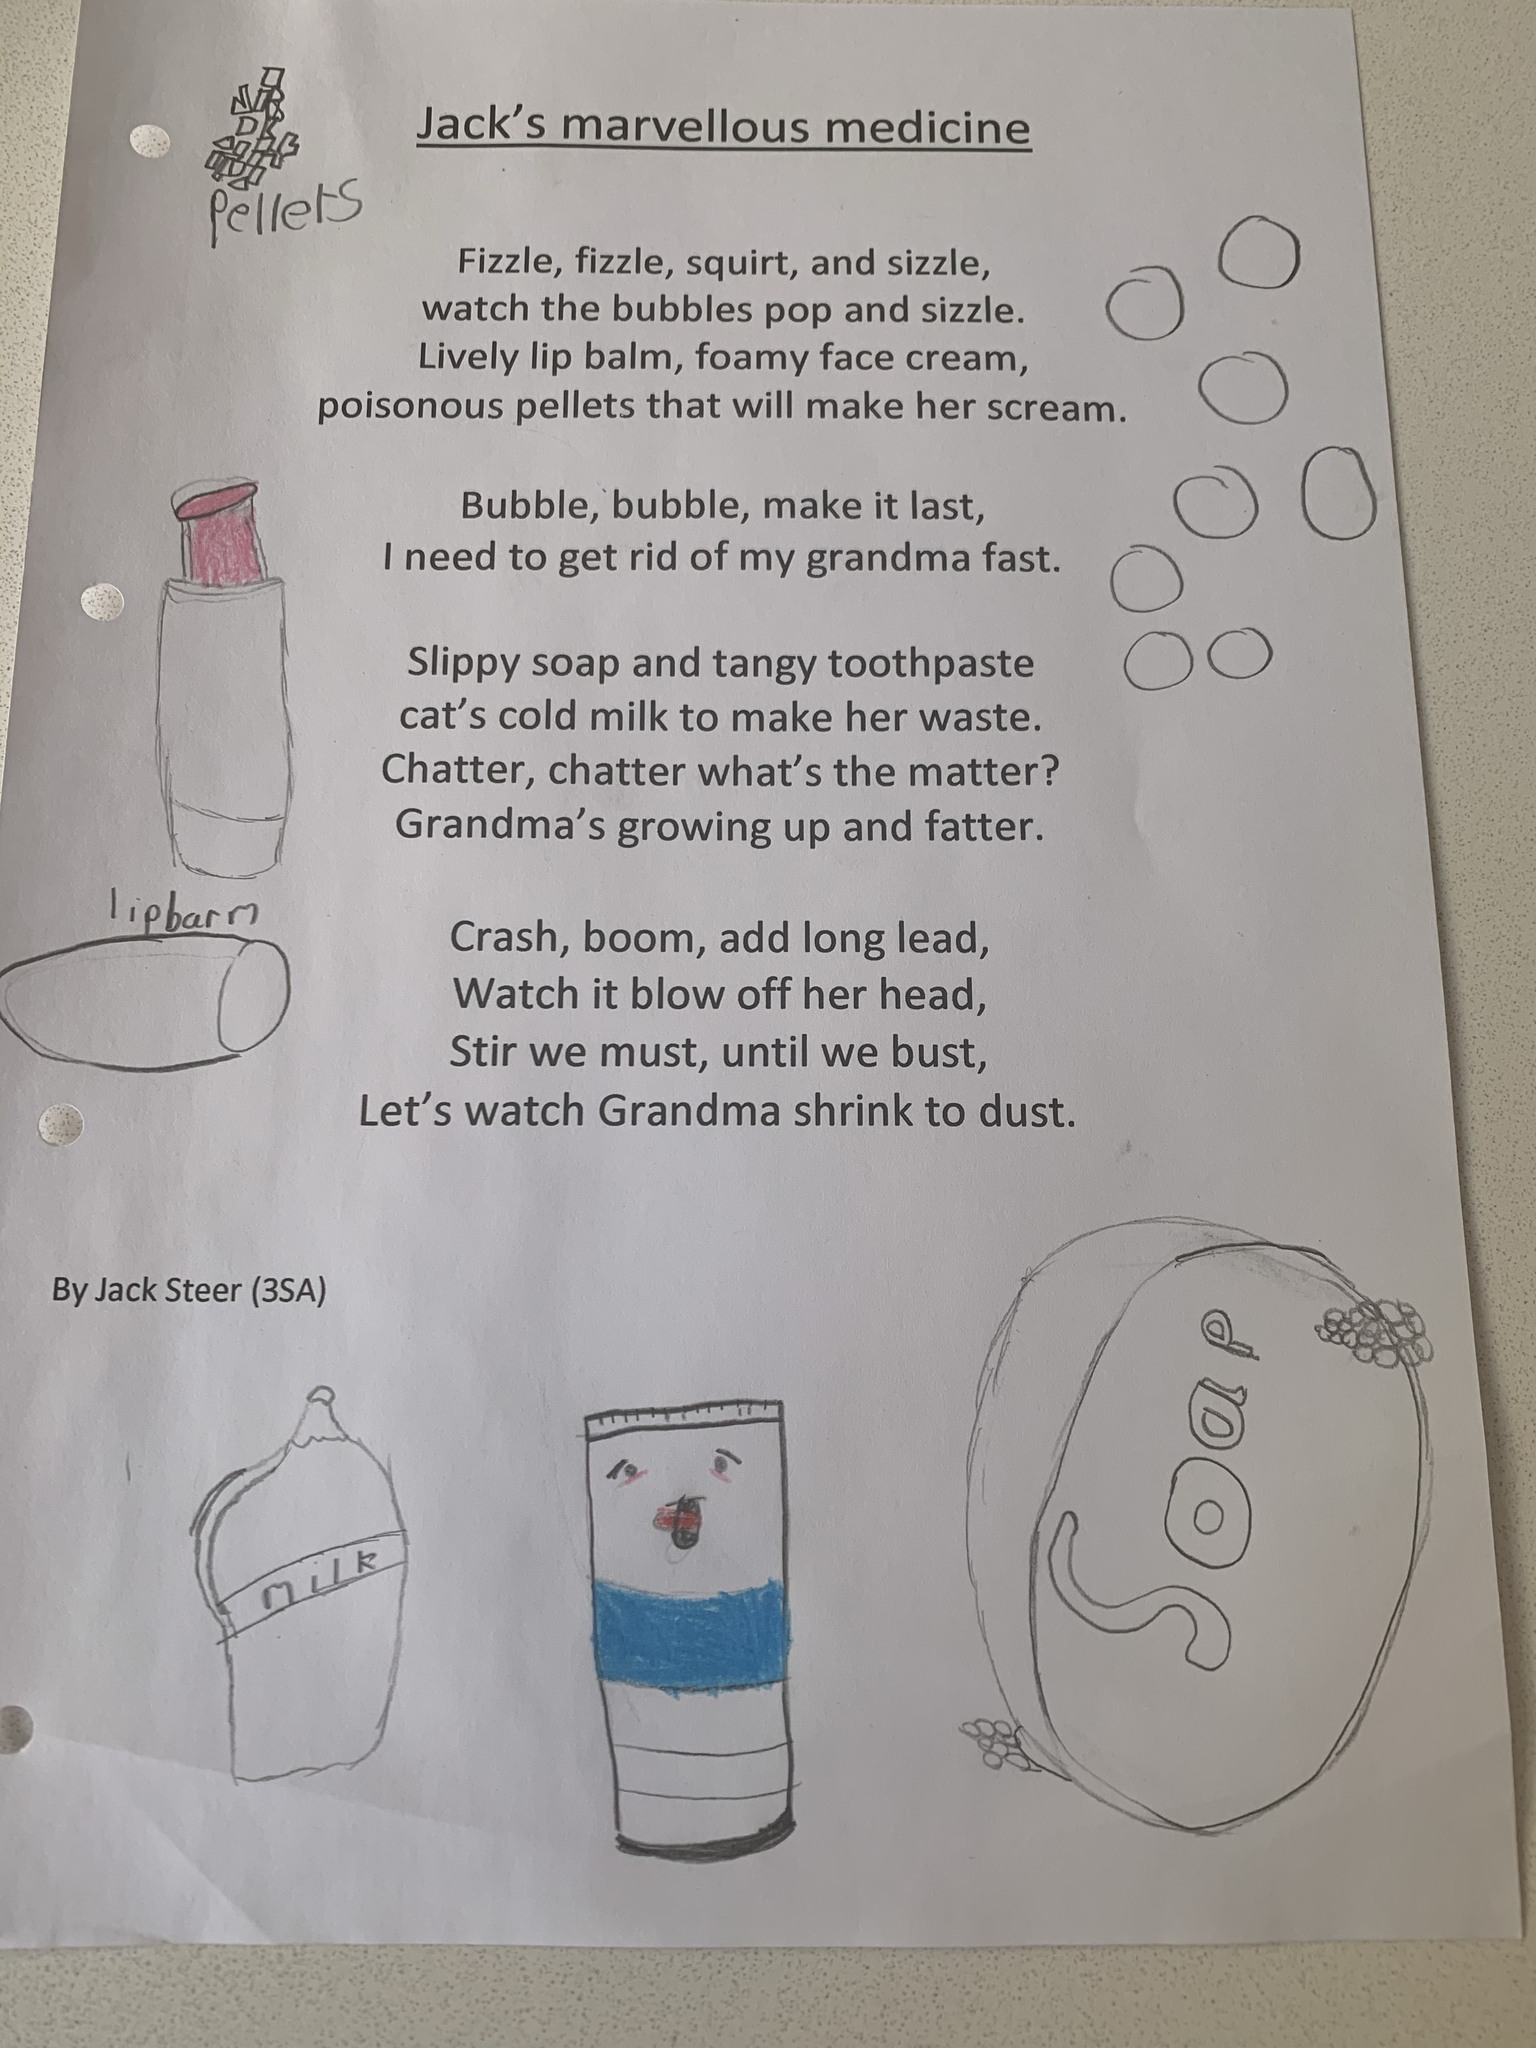 Jack's marvellous medicine
Pellets
Fizzle, fizzle, squirt, and sizzle,
watch the bubbles pop and sizzle.
Lively lip balm, foamy face cream,
poisonous pellets that will make her scream.
Bubble, bubble, make it last,
I need to get rid of my grandma fast.
Slippy soap and tangy toothpaste
cat's cold milk to make her waste.
Chatter, chatter what's the matter?
Grandma's growing up and fatter.
lipbarm
Crash, boom, add long lead,
Watch it blow off her head,
Stir we must, until we bust,
Let's watch Grandma shrink to dust.
By Jack Steer (3SA)
milk
Soap